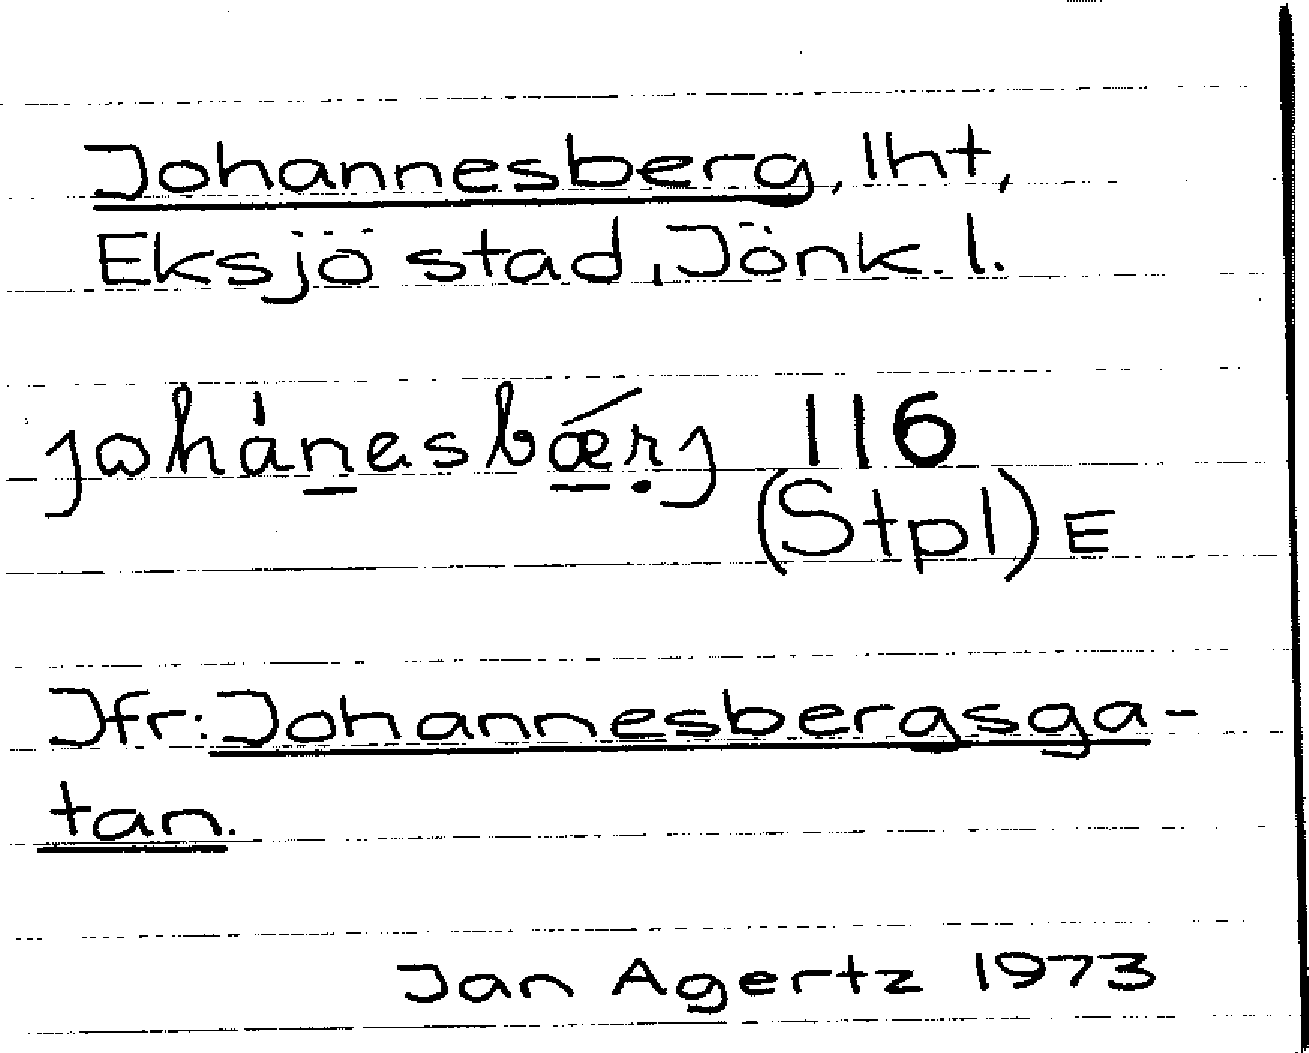 Johannesberg, lht,
Eksjö stad, Jönk. l.
johánesbǽrj 116
(Stpl) E
Jfr: Johannesbergsga-
tan.
Jan Agertz 1973